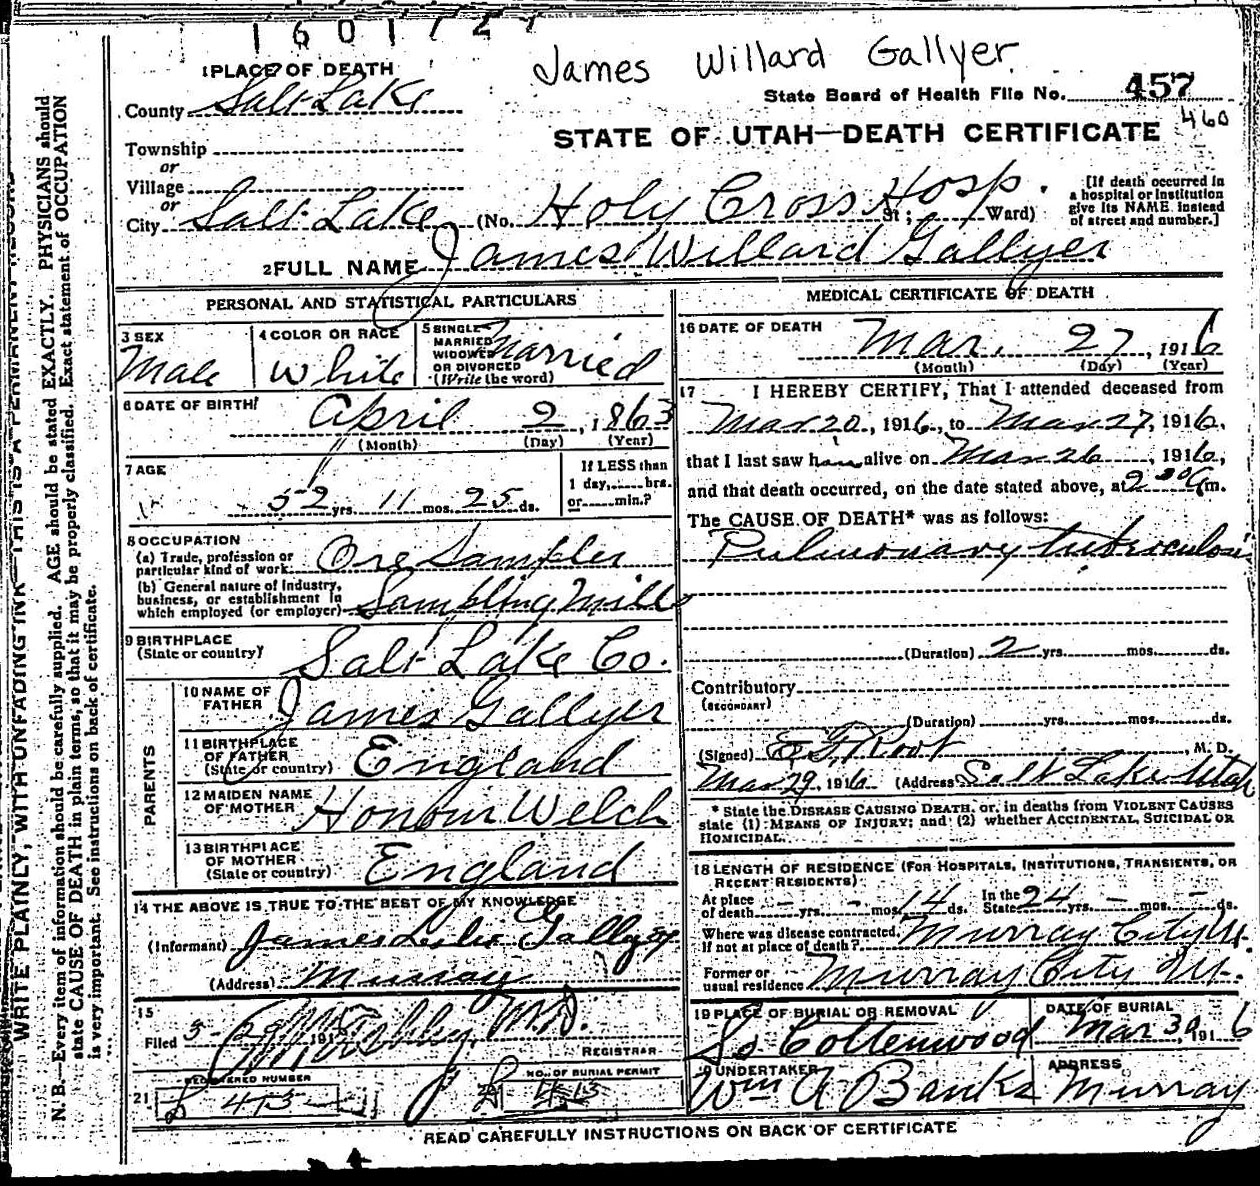 1601727
James Willard Gallyer
1 PLACE OF DEATH
County Salt Lake
State Board of Health File No. 457
460
STATE OF UTAH—DEATH CERTIFICATE
Township
or
Village
or
City Salt Lake (No. Holy Cross Hosp. St; Ward)
[If death occurred in
a hospital or institution
give its NAME instead
of street and number.]
2 FULL NAME James Willard Gallyer
PERSONAL AND STATISTICAL PARTICULARS
3 SEX
Male
4 COLOR OR RACE
White
5 SINGLE
MARRIED
WIDOWED
OR DIVORCED
(Write the word)
Married
6 DATE OF BIRTH
April 2, 1863
(Month) (Day) (Year)
7 AGE
52 yrs. 11 mos. 25 ds.
If LESS than
1 day,......hrs.
or......min.?
8 OCCUPATION
(a) Trade, profession or
particular kind of work: Ore Sampler
(b) General nature of Industry,
business, or establishment in
which employed (or employer) Sampling Mills
9 BIRTHPLACE
(State or country)
Salt Lake Co.
PARENTS
10 NAME OF
FATHER
James Gallyer
11 BIRTHPLACE
OF FATHER
(State or country)
England
12 MAIDEN NAME
OF MOTHER
Honour Welch
13 BIRTHPLACE
OF MOTHER
(State or country)
England
14 THE ABOVE IS TRUE TO THE BEST OF MY KNOWLEDGE
(Informant) James Leslie Gallyer
(Address) Murray
15
Filed 3- 191 M.D.
REGISTRAR
21
REGISTERED NUMBER
413
NO. OF BURIAL PERMIT
413
MEDICAL CERTIFICATE OF DEATH
16 DATE OF DEATH
Mar. 27, 1916
(Month) (Day) (Year)
17 I HEREBY CERTIFY, That I attended deceased from
Mar 20, 1916, to Mar 27, 1916,
that I last saw him alive on Mar 26, 1916,
and that death occurred, on the date stated above, at 2 30 a m.
The CAUSE OF DEATH* was as follows:
Pulmonary tuberculosis
(Duration) 2 yrs. mos. ds.
Contributory
(SECONDARY)
(Duration) yrs. mos. ds.
(Signed) E F Root, M. D.
Mar 29, 1916 (Address) Salt Lake Utah
* State the DISEASE CAUSING DEATH, or, in deaths from VIOLENT CAUSES
state (1) MEANS OF INJURY; and (2) whether ACCIDENTAL, SUICIDAL OR
HOMICIDAL.
18 LENGTH OF RESIDENCE (FOR HOSPITALS, INSTITUTIONS, TRANSIENTS, OR
RECENT RESIDENTS)
At place
of death - yrs. - mos. 14 ds.
In the
State 24 yrs. - mos. - ds.
Where was disease contracted,
if not at place of death? Murray City Ut.
Former or
usual residence Murray City Ut.
19 PLACE OF BURIAL OR REMOVAL
So Cottonwood
DATE OF BURIAL
Mar 30, 1916
20 UNDERTAKER
Wm A Banks
ADDRESS
Murray
READ CAREFULLY INSTRUCTIONS ON BACK OF CERTIFICATE
WRITE PLAINLY, WITH UNFADING INK—THIS IS A PERMANENT RECORD
N. B.—Every item of information should be carefully supplied. AGE should be stated EXACTLY. PHYSICIANS should
state CAUSE OF DEATH in plain terms, so that it may be properly classified. Exact statement of OCCUPATION
is very important. See instructions on back of certificate.